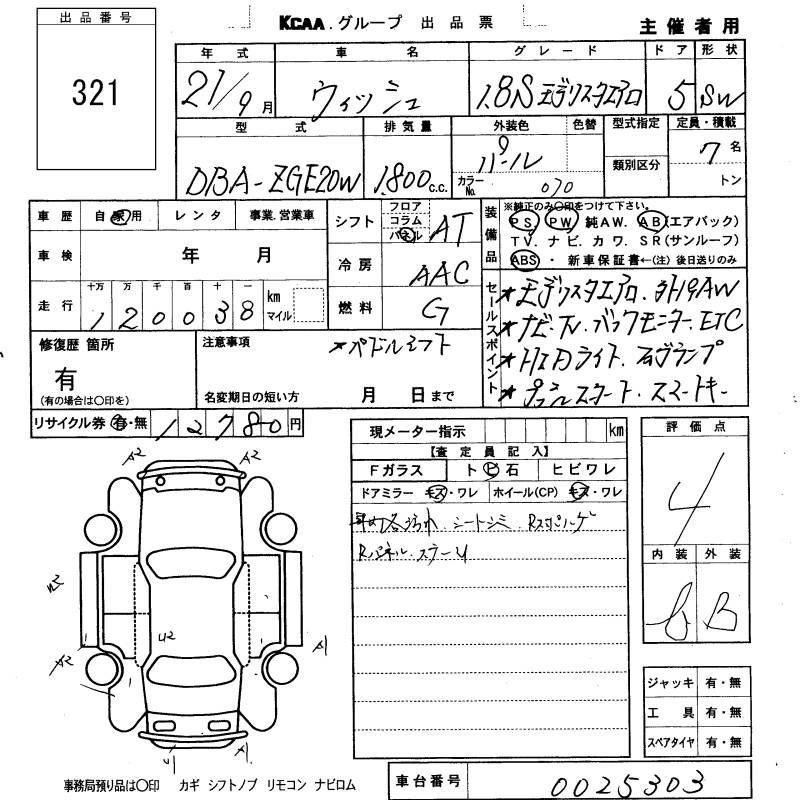 出品番号
321
KCAA.グループ 出品票
主催者用
年式 車名 グレード ドア 形状
21/9月 ウィッシュ 1.8S エアリスタエアロ 5 SW
型式 排気量 外装色 色替 型式指定 定員・積載
DBA-ZGE20W 1800c.c. パール 類別区分 7名
カラーNo. 070 トン
車歴 自家用 レンタ 事業.営業車
シフト フロア コラム パネル AT
車検 年 月
冷房 AAC
走行 十万 万 千 百 十 一 km マイル
120038
燃料 G
装備品
※純正のみ○印をつけて下さい。
PS PW 純AW. AB(エアバック)
TV. ナビ. カワ. SR(サンルーフ)
ABS ・ 新車保証書←(注)後日送りのみ
セールスポイント
★ナビ・TV. バックモニター. ETC
★HIDライト. フォグランプ
★プッシュスタート. スマートキー
修復歴 箇所
有
(有の場合は○印を)
注意事項
★パドルシフト
名変期日の短い方 月 日まで
リサイクル券 有・無 12780円
現メーター指示 km
【査定員記入】
Fガラス ト ビ 石 ヒビワレ
ドアミラー キズ・ワレ ホイール(CP) キズ・ワレ
シートシミ.
Rパネル.
評価点
4
内装 外装
B B
A2 A2
A2
U2
A2 A1
U1 A1
ジャッキ 有・無
工具 有・無
スペアタイヤ 有・無
事務局預り品は○印 カギ シフトノブ リモコン ナビロム
車台番号 0025303